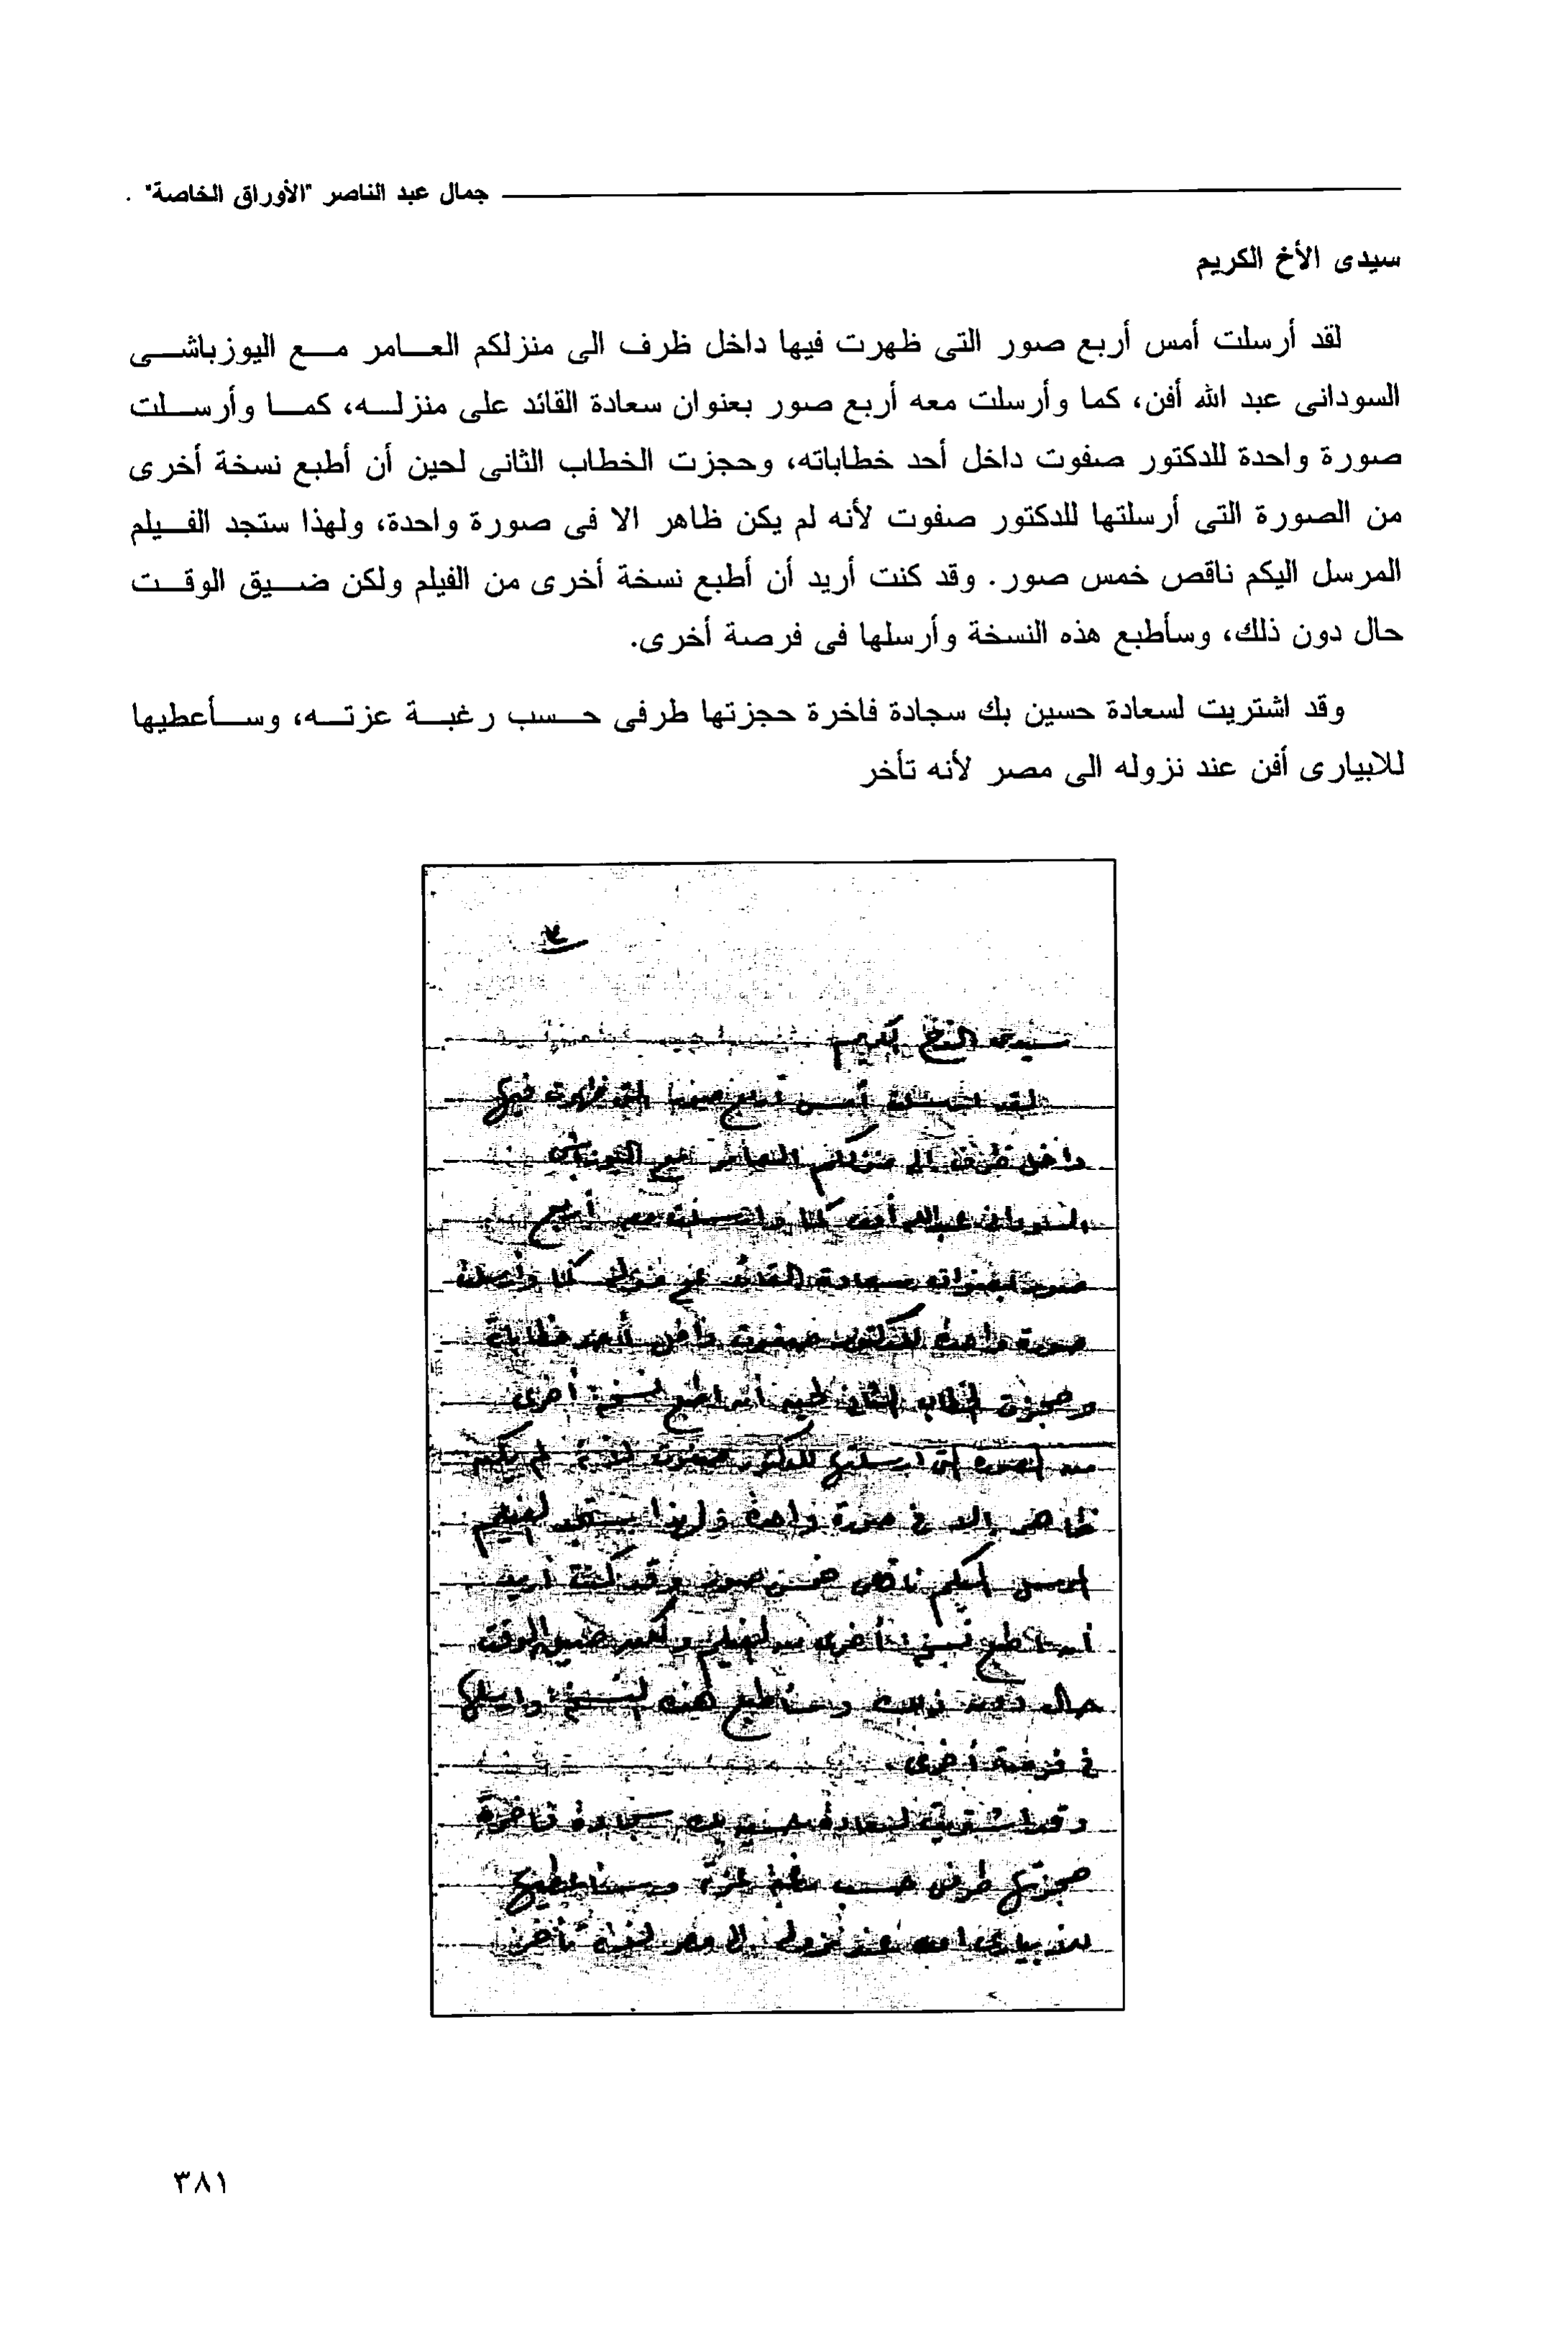 جمال عبد الناصر "الأوراق الخاصة" .
سيدى الأخ الكريم
لقد أرسلت أمس أربع صور التى ظهرت فيها داخل ظرف الى منزلكم العامر مع اليوزباشى
السودانى عبد الله أفن، كما وأرسلت معه أربع صور بعنوان سعادة القائد على منزله، كما وأرسلت
صورة واحدة للدكتور صفوت داخل أحد خطاباته، وحجزت الخطاب الثانى لحين أن أطبع نسخة أخرى
من الصورة التى أرسلتها للدكتور صفوت لأنه لم يكن ظاهر الا فى صورة واحدة، ولهذا ستجد الفيلم
المرسل اليكم ناقص خمس صور. وقد كنت أريد أن أطبع نسخة أخرى من الفيلم ولكن ضيق الوقت
حال دون ذلك، وسأطبع هذه النسخة وأرسلها فى فرصة أخرى.
وقد اشتريت لسعادة حسين بك سجادة فاخرة حجزتها طرفى حسب رغبة عزته، وسأعطيها
للابيارى أفن عند نزوله الى مصر لأنه تأخر
سيدى الأخ الكريم
لقد أرسلت أمس أربع صور التى ظهرت فيها
داخل ظرف الى منزلكم العامر مع اليوزباشى
السودانى عبد الله أفن كما وأرسلت معه أربع
صور بعنوان سعادة القائد على منزله كما وأرسلت
صورة واحدة للدكتور صفوت داخل أحد خطاباته
وحجزت الخطاب الثانى لحين أن اطبع نسخة أخرى
من الصورة التى أرسلتها للدكتور صفوت لأنه لم يكن
ظاهر الا فى صورة واحدة ولهذا ستجد الفيلم
المرسل اليكم ناقص خمس صور وقد كنت أريد
أن أطبع نسخة أخرى من الفيلم ولكن ضيق الوقت
حال دون ذلك وسأطبع هذه النسخة وأرسلها
فى فرصة أخرى.
وقد اشتريت لسعادة حسين بك سجادة فاخرة
حجزتها طرفى حسب عزته وسأعطيها
للابيارى أفن عند نزوله الى مصر لأنه تأخر
٣٨١